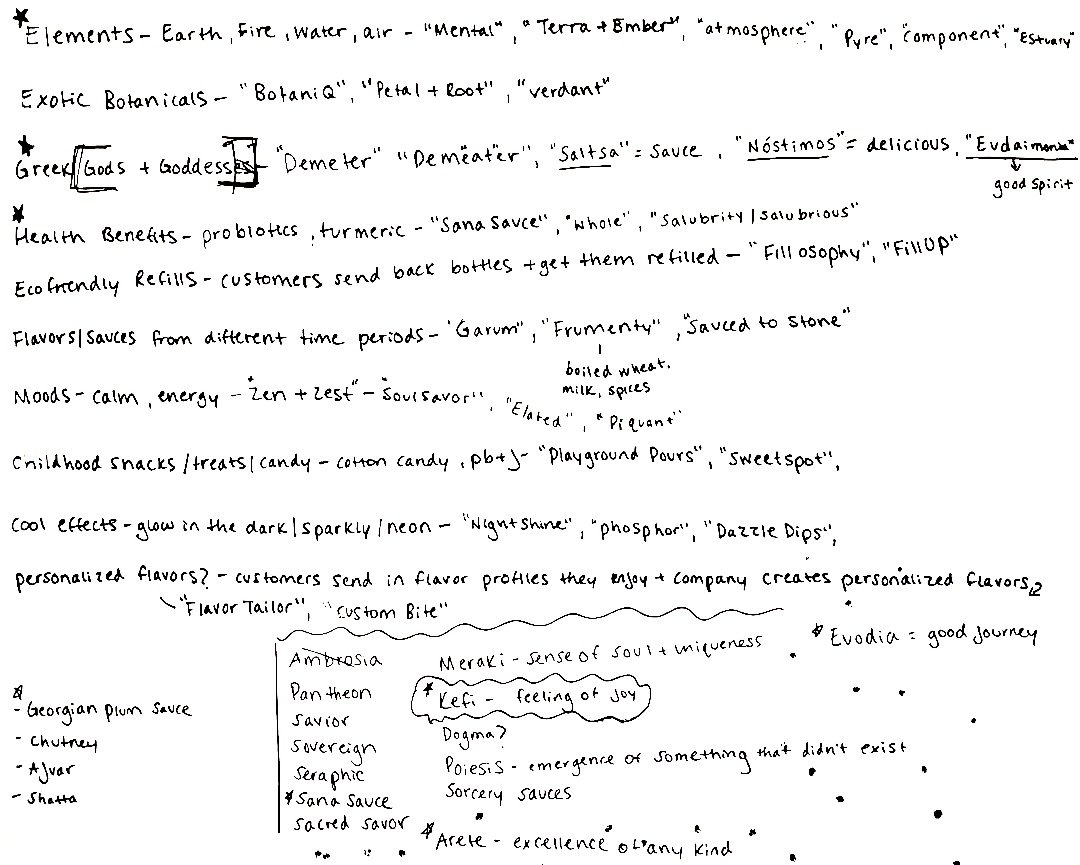 Elements - Earth, Fire, water, air - "Mental", "Terra + Ember", "atmosphere", "Pyre", "component", "Estuary"
Exotic Botanicals - "BotaniQ", "Petal + Root", "verdant"
Greek Gods + Goddesses - "Demeter" "Demeater", "Saltsa" = sauce, "Nóstimos" = delicious, "Evdaimonia"
good spirit
Health Benefits - probiotics, turmeric - "Sana Sauce", "whole", "Salubrity/Salubrious"
Ecofriendly Refills - customers send back bottles + get them refilled - "Fillosophy", "FillUP"
Flavors/Sauces from different time periods - "Garum", "Frumenty", "Sauced to Stone"
boiled wheat,
milk, spices
Moods - calm, energy - "Zen + Zest" - "Soulsavor", "Elated", "Piquant"
Childhood snacks/treats/candy - cotton candy, pb+J - "Playground Pours", "Sweetspot",
Cool effects - glow in the dark/sparkly/neon - "NightShine", "phosphor", "Dazzle Dips",
personalized flavors? - customers send in flavor profiles they enjoy + company creates personalized flavors
"Flavor Tailor", "Custom Bite"
Ambrosia
Pantheon
Savior
Sovereign
Seraphic
Sana Sauce
Sacred savor
Meraki - sense of soul + uniqueness
Kefi - feeling of joy
Dogma?
Poiesis - emergence of something that didn't exist
Sorcery sauces
Arete - excellence of any kind
Evodia = good journey
- Georgian plum sauce
- Chutney
- Ajvar
- Shatta